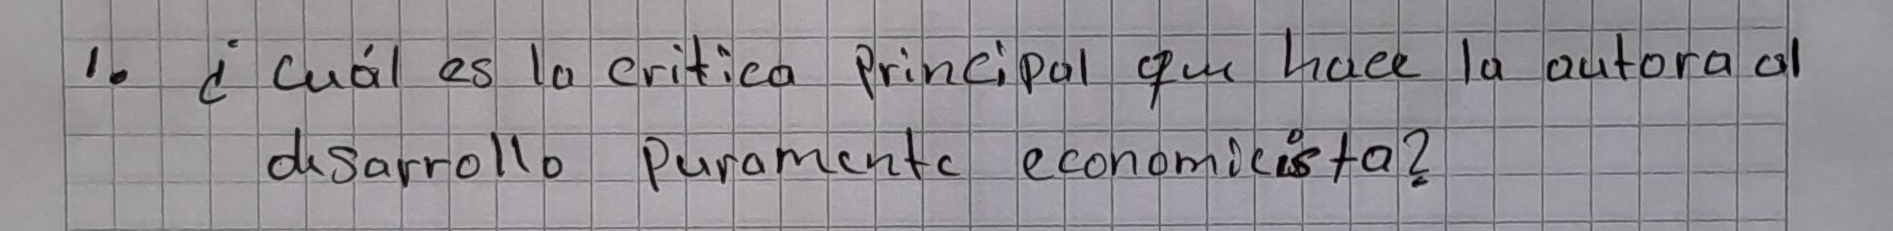 1. ¿Cuál es la critica principal que hace la autora al
desarrollo puramente economicista?